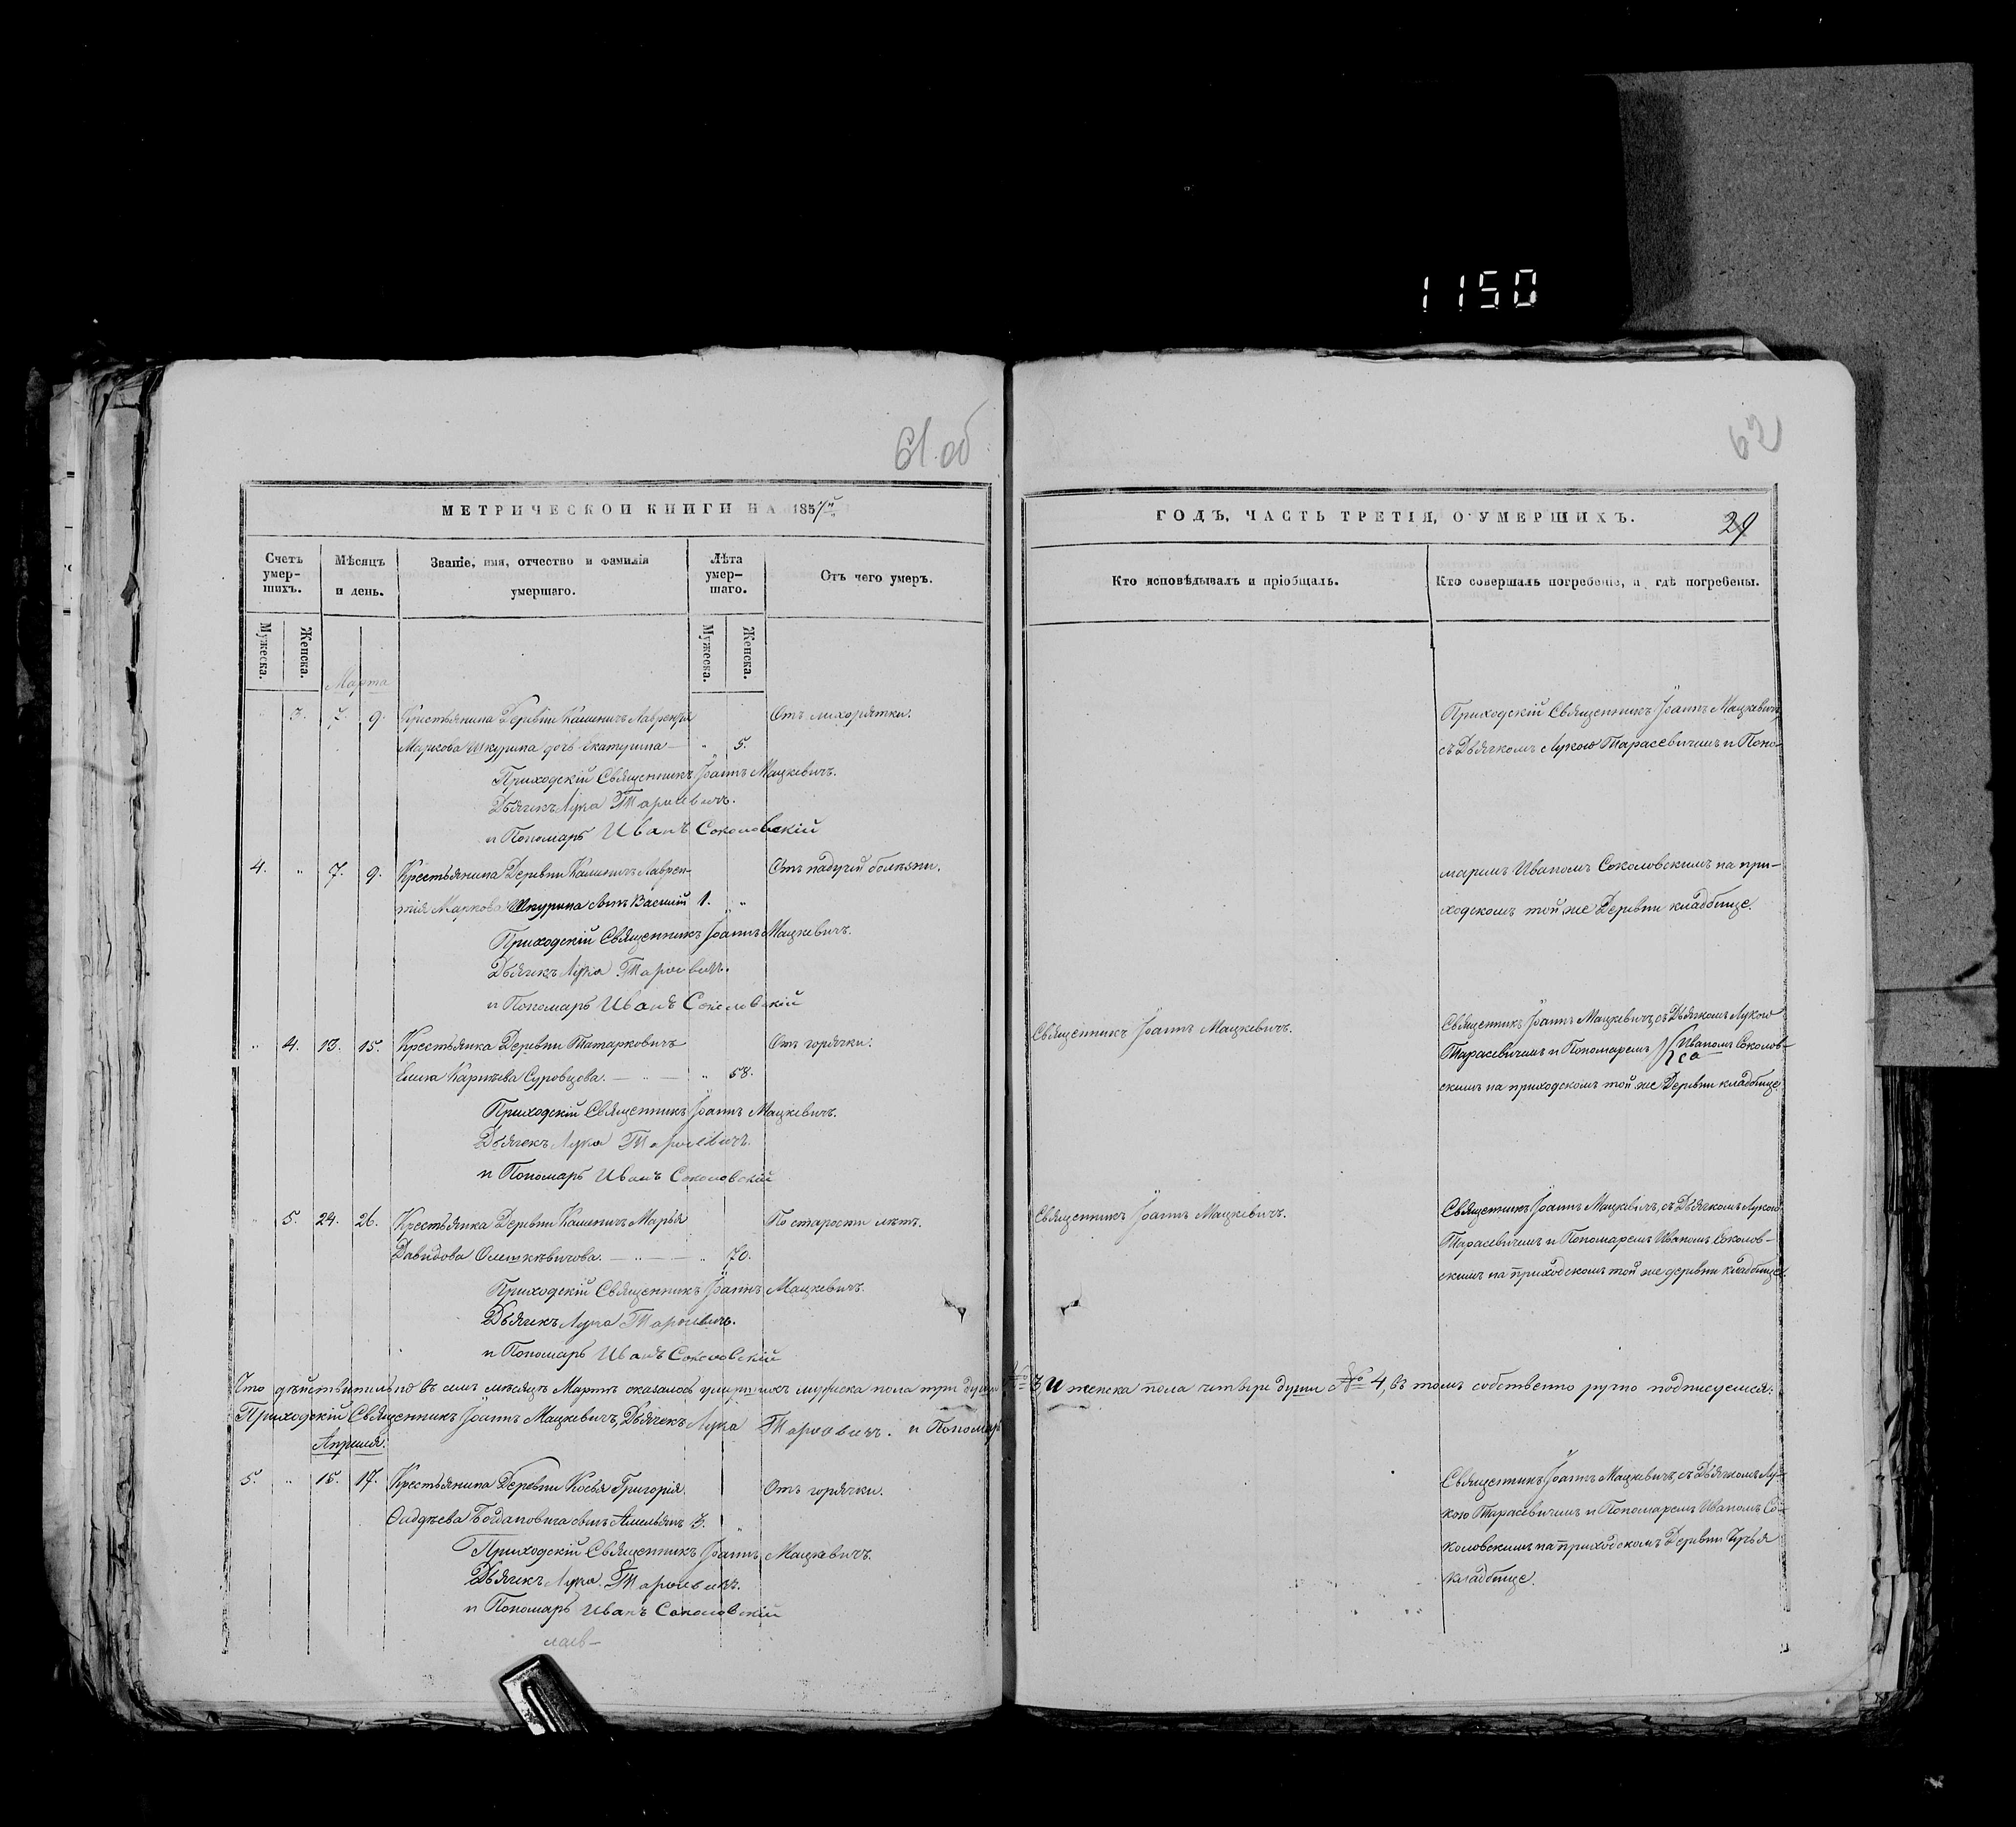 1150
61.об
62
МЕТРИЧЕСКОЙ КНИГИ НА 1857й
Счетъ умер-шихъ.
Мѣсяцъ и день.
Званіе, имя, отчество и фамилія умершаго.
Лѣта умер-шаго.
Отъ чего умеръ.
Мужеска.
Женска.
Мужеска.
Женска.
Марта
3. 9. Крестьянина Деревни Калиничъ Лаврентія Отъ лихорятки.
Маркова Шкурина дочь Екатерина — „ 5.
Приходскій Священникъ Іоаннъ Мацкевичъ.
Дьячекъ Лука Тарасевичъ.
и Пономарь Иванъ Соколовскій
4. „ 7. 9. Крестьянина Деревни Калиничъ Лаврен- Отъ падучей болѣзни.
тія Маркова Шкурина сынъ Василій 1. „
Приходскій Священникъ Іоаннъ Мацкевичъ.
Дьячекъ Лука Тарасевичъ.
и Пономарь Иванъ Соколовскій
„ 4. 13. 15. Крестьянка Деревни Татарковичъ Отъ горячки.
Суровцова. — „ — „ 58.
Приходскій Священникъ Іоаннъ Мацкевичъ.
Дьячекъ Лука Тарасевичъ.
и Пономарь Иванъ Соколовскій
„ 5. 24. 26. Крестьянка Деревни Калиничъ Марья По старости лѣтъ.
Давидова — „ — „ 70.
Приходскій Священникъ Іоаннъ Мацкевичъ.
Дьячекъ Лука Тарасевичъ.
и Пономарь Иванъ Соколовскій
Что дѣйствительно въ семъ мѣсяцѣ Мартѣ оказалось умершихъ мужеска пола три души № 3, и женска пола четыре души № 4, въ томъ собственно ручно подписуемся:
Приходскій Священникъ Іоаннъ Мацкевичъ, Дьячекъ Лука Тарасевичъ. и Пономарь
Апреля.
5. „ 15. 17. Крестьянина Деревни Григорія Отъ горячки.
Фаддѣева Богдановича сынъ Амельянъ 3. „
Приходскій Священникъ Іоаннъ Мацкевичъ.
Дьячекъ Лука Тарасевичъ.
и Пономарь Иванъ Соколовскій
ГОДЪ, ЧАСТЬ ТРЕТІЯ, О УМЕРШИХЪ.
29
Кто исповѣдывалъ и пріобщалъ.
Кто совершалъ погребеніе, и гдѣ погребены.
Приходскій Священникъ Іоаннъ Мацкевичъ,
съ Дьячкомъ Лукою Тарасевичемъ и Поно-
маремъ Иваномъ Соколовскимъ на при-
ходскомъ той же Деревни кладбище.
Священникъ Іоаннъ Мацкевичъ.
Священникъ Іоаннъ Мацкевичъ, съ Дьячкомъ Лукою
Тарасевичемъ и Пономаремъ Иваномъ Соколов-
скимъ на приходскомъ той же Деревни кладбище.
Священникъ Іоаннъ Мацкевичъ.
Священникъ Іоаннъ Мацкевичъ, съ Дьячкомъ Лукою
Тарасевичемъ и Пономаремъ Иваномъ Соколов-
скимъ на приходскомъ той же деревни кладбище.
Священникъ Іоаннъ Мацкевичъ, съ Дьячкомъ Лу-
кою Тарасевичемъ и Пономаремъ Иваномъ Со-
коловскимъ на приходскомъ Деревни
кладбище.